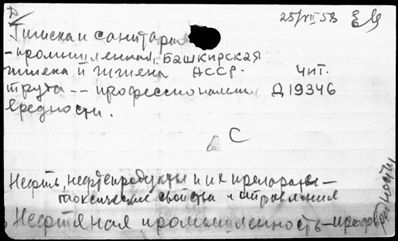 25/VII 58
Гигиена и санитария
- промышленная, Башкирская
гигиена и гигиена АССР. чит.
труда -- профессиональн Д19346
вредности.
С
Нефть, нефтепродукты и их препараты -
токсические свойства и отравления
Нефтяная промышленность - профвредности